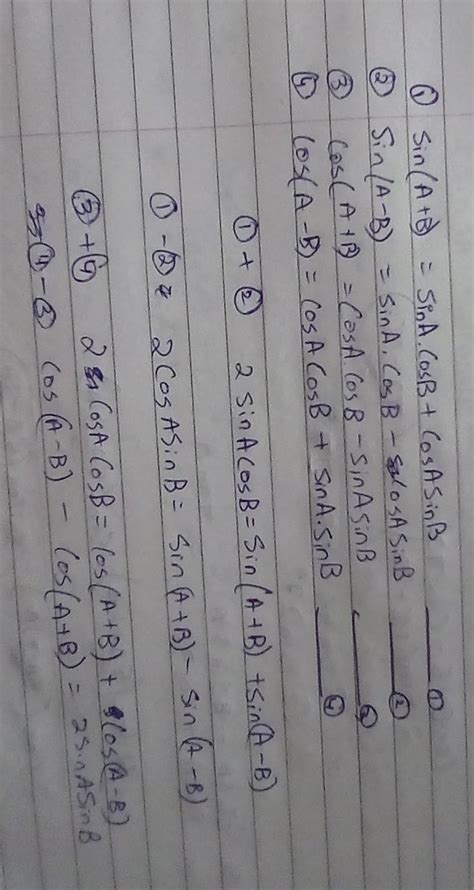 ① sin(A+B) = sinA.cosB + cosAsinB ——①
② sin(A-B) = sinA.cosB - cosAsinB ——②
③ cos(A+B) = cosA.cosB - sinAsinB ——③
④ cos(A-B) = cosAcosB + sinA.sinB ——④
①+② 2sinAcosB = sin(A+B) + sin(A-B)
①-② 2cosAsinB = sin(A+B) - sin(A-B)
③+④ 2cosAcosB = cos(A+B) + cos(A-B)
④-③ cos(A-B) - cos(A+B) = 2sinAsinB